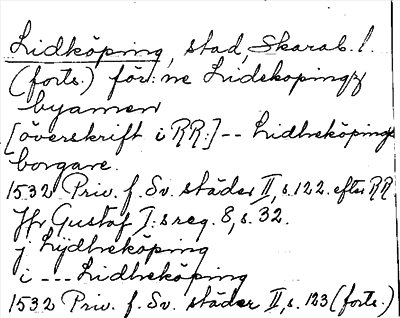 Lidköping, stad, Skarab. l.
(forts.) för: ne Lidekopingz
byamen
[överskrift i RR:] -- Lidheköpings
borgare.
1532 Priv. f. Sv. städer II, s. 122. efter RR
Jfr Gustaf I:s reg. 8, s. 32.
j Lÿdheköping
i --- Lidheköping
1532 Priv. f. Sv. städer II, s. 123 (forts.)